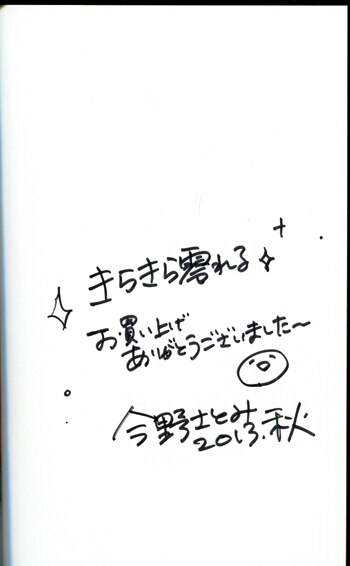 きらきら零れる
お買い上げ
ありがとうございました〜
今野さとみ
2013.秋